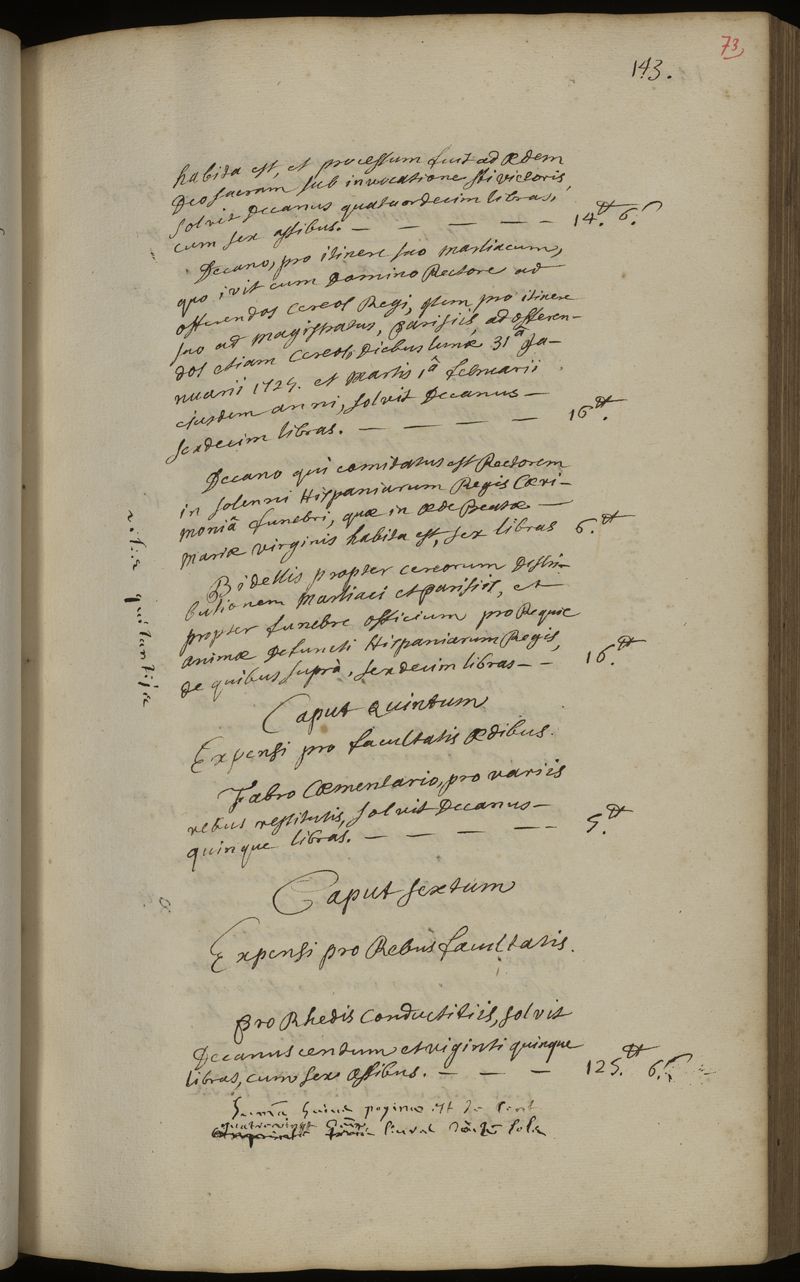 73
143.
habita est, et processum fuit ad ædem
Deo sacram sub invocatione sti victoris,
solvit Decanus quatuordecim libras,
cum sex assibus. — — — — — 14.tt 6.s
Decano, pro itinere suo marliacum,
quo ivit cum Domino Rectore ad
offerendos cereos Regi, item pro itinere
suo ad magistratus, parisiis, ad offeren-
dos etiam cereos, diebus lunæ 31â Ja-
nuarii 1725. et martis 1â februarii
ejusdem anni, solvit Decanus —
sexdecim libras. — — — — 16tt.
Decano qui comitatus est Rectorem
in solenni Hispaniarum Regis Cæri-
moniâ funebri, quæ in æde Beatæ —
mariæ virginis habita est, sex libras 6.tt
Bidellis propter cereorum distri-
butionem marliaci et parisiis, et
propter funebre officium pro Requie
animæ defuncti Hispaniarum Regis,
de quibus suprà, sexdecim libras — — 16.tt
quitantiæ
Caput quintum
Expensi pro facultatis ædibus.
Fabro cæmentario, pro variis
rebus restitutis, solvit Decanus —
quinque libras. — — — — — 5.tt
Caput sextum
Expensi pro Rebus facultatis.
pro Rhedis conductitiis, solvit
Decanus centum et viginti quinque
libras, cum sex assibus. — — — 125.tt 6.s
paginæ est
quatrevingt